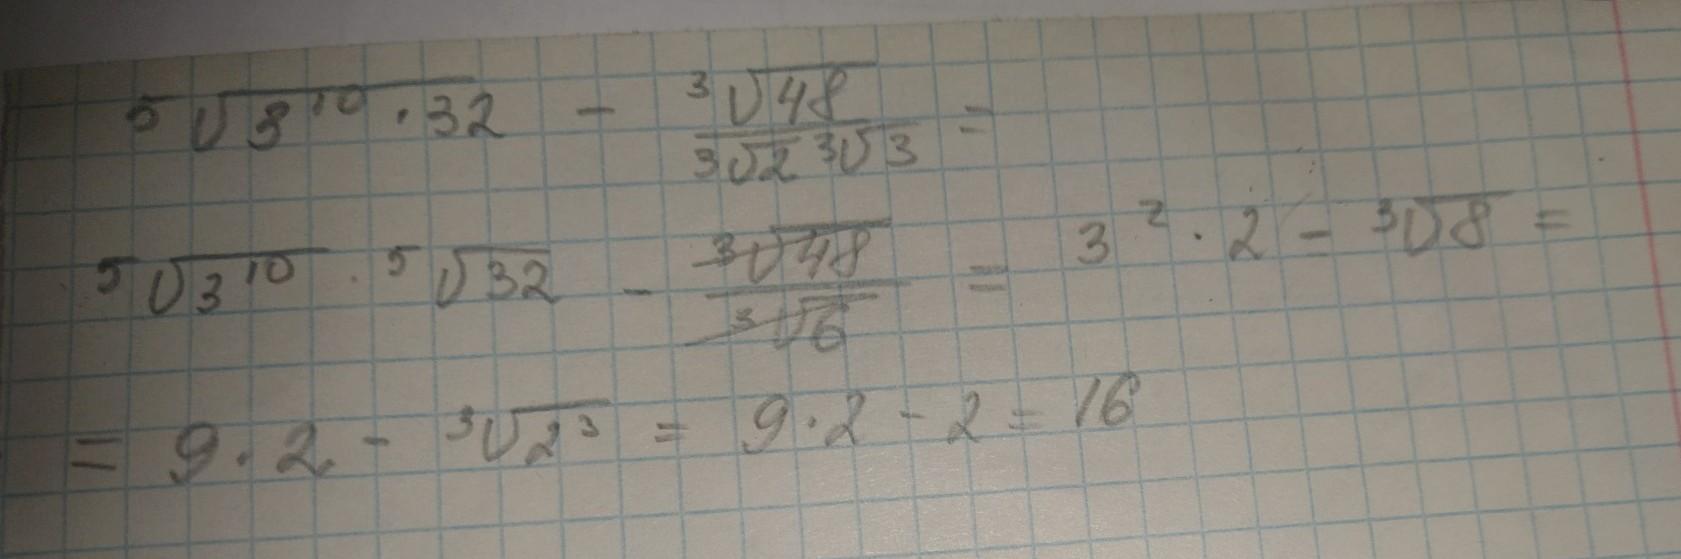 ⁵√3¹⁰ · 32 − ³√48 / ³√2 ³√3 =
⁵√3¹⁰ · ⁵√32 − ³√48 / ³√6 = 3² · 2 − ³√8 =
= 9 · 2 − ³√2³ = 9 · 2 − 2 = 16